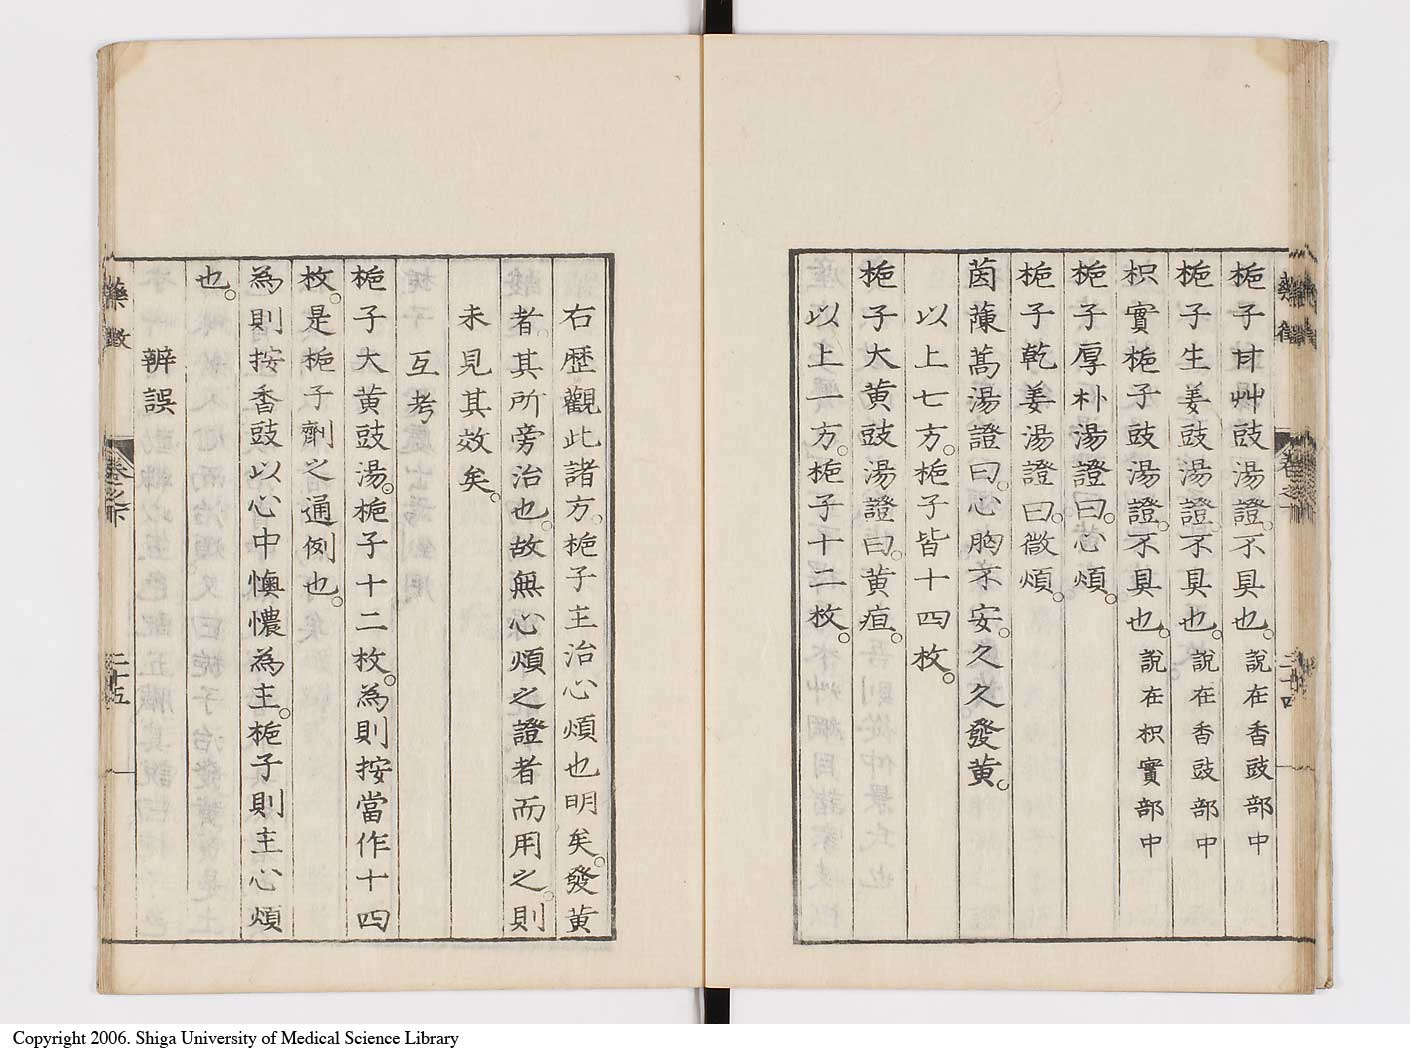 梔子甘艸豉湯證不具也。說在香豉部中
梔子生姜豉湯證。不具也。說在香豉部中
枳實梔子豉湯證。不具也。說在枳實部中
梔子厚朴湯證曰。心煩。
梔子乾姜湯證曰。微煩。
茵蔯蒿湯證曰。心胸不安。久久發黄。
以上七方。梔子皆十四枚。
梔子大黄豉湯證曰。黄疸。
以上一方。梔子十二枚。
右歷觀此諸方。梔子主治心煩也明矣。發黄
者。其所旁治也。故無心煩之證者而用之。則
未見其效矣。
互考
梔子大黄豉湯。梔子十二枚。為則按當作十四
枚。是梔子劑之通例也。
為則按香豉以心中懊憹為主。梔子則主心煩
也。
辨誤
藥徵
卷之下
二十五